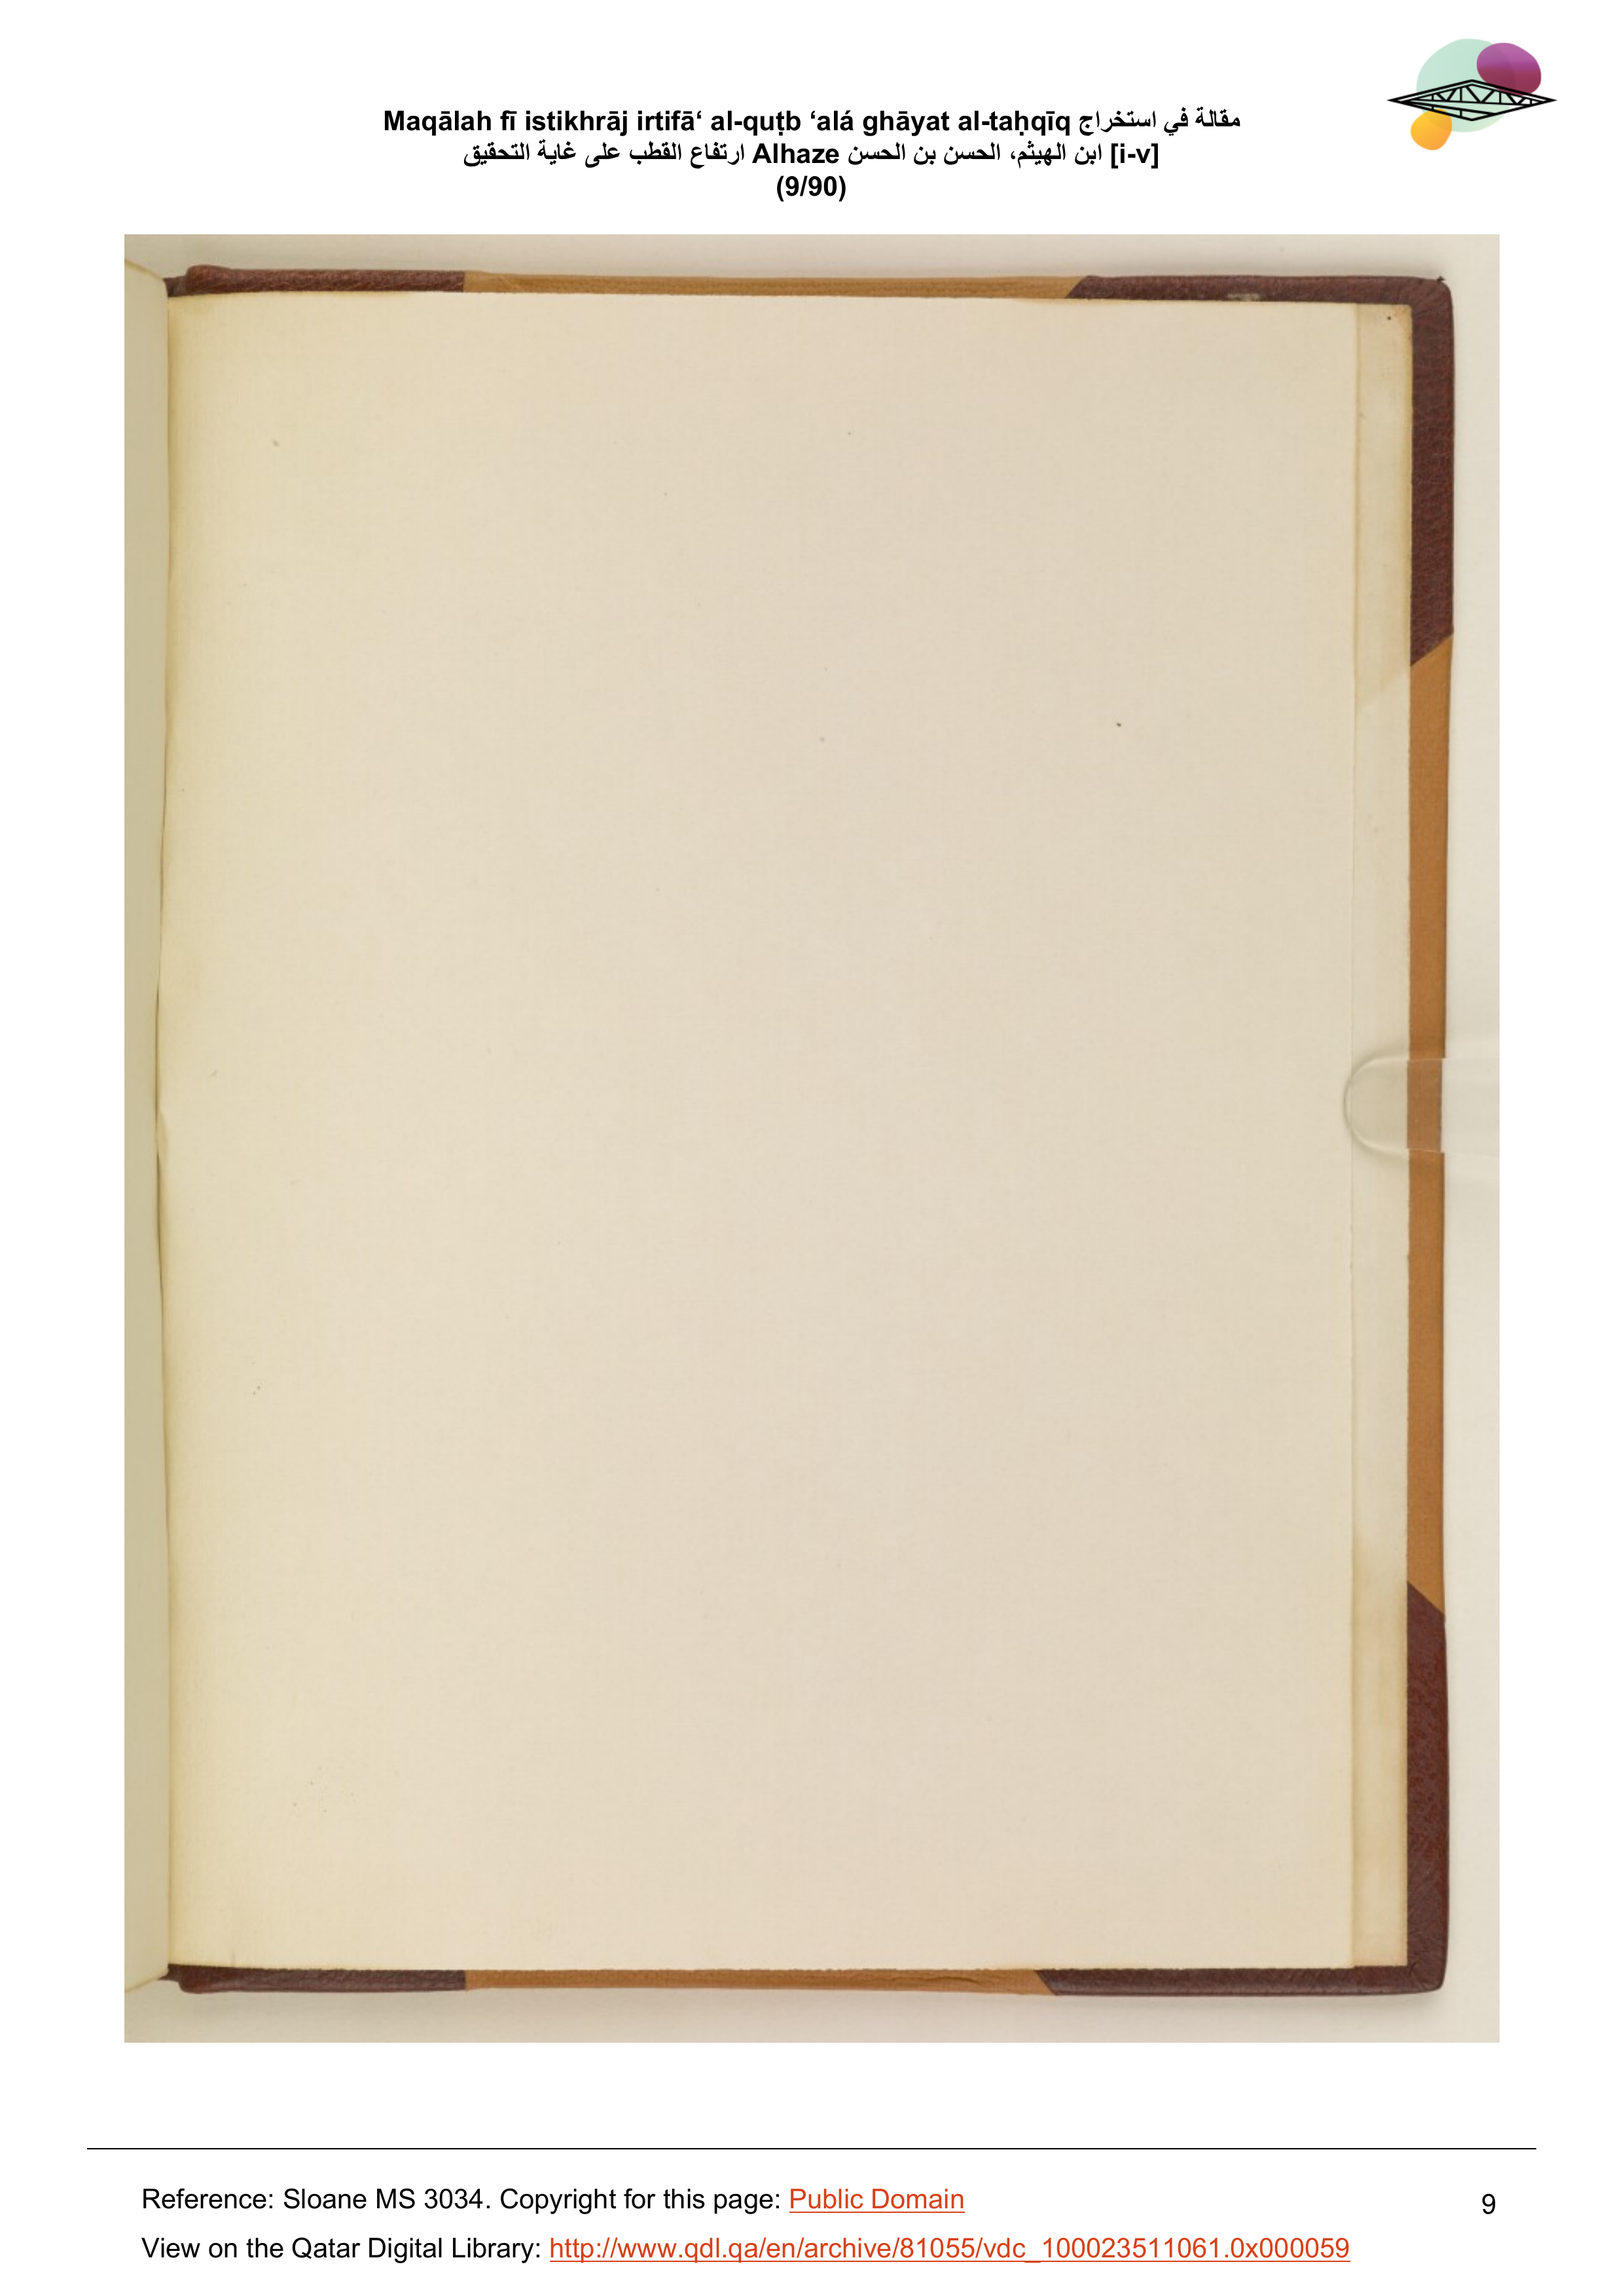 Maqālah fī istikhrāj irtifā‘ al-quṭb ‘alá ghāyat al-taḥqīq مقالة في استخراج
ارتفاع القطب على غاية التحقيق Alhaze ابن الهيثم، الحسن بن الحسن [i-v]
(9/90)
Reference: Sloane MS 3034. Copyright for this page: Public Domain
9
View on the Qatar Digital Library: http://www.qdl.qa/en/archive/81055/vdc_100023511061.0x000059